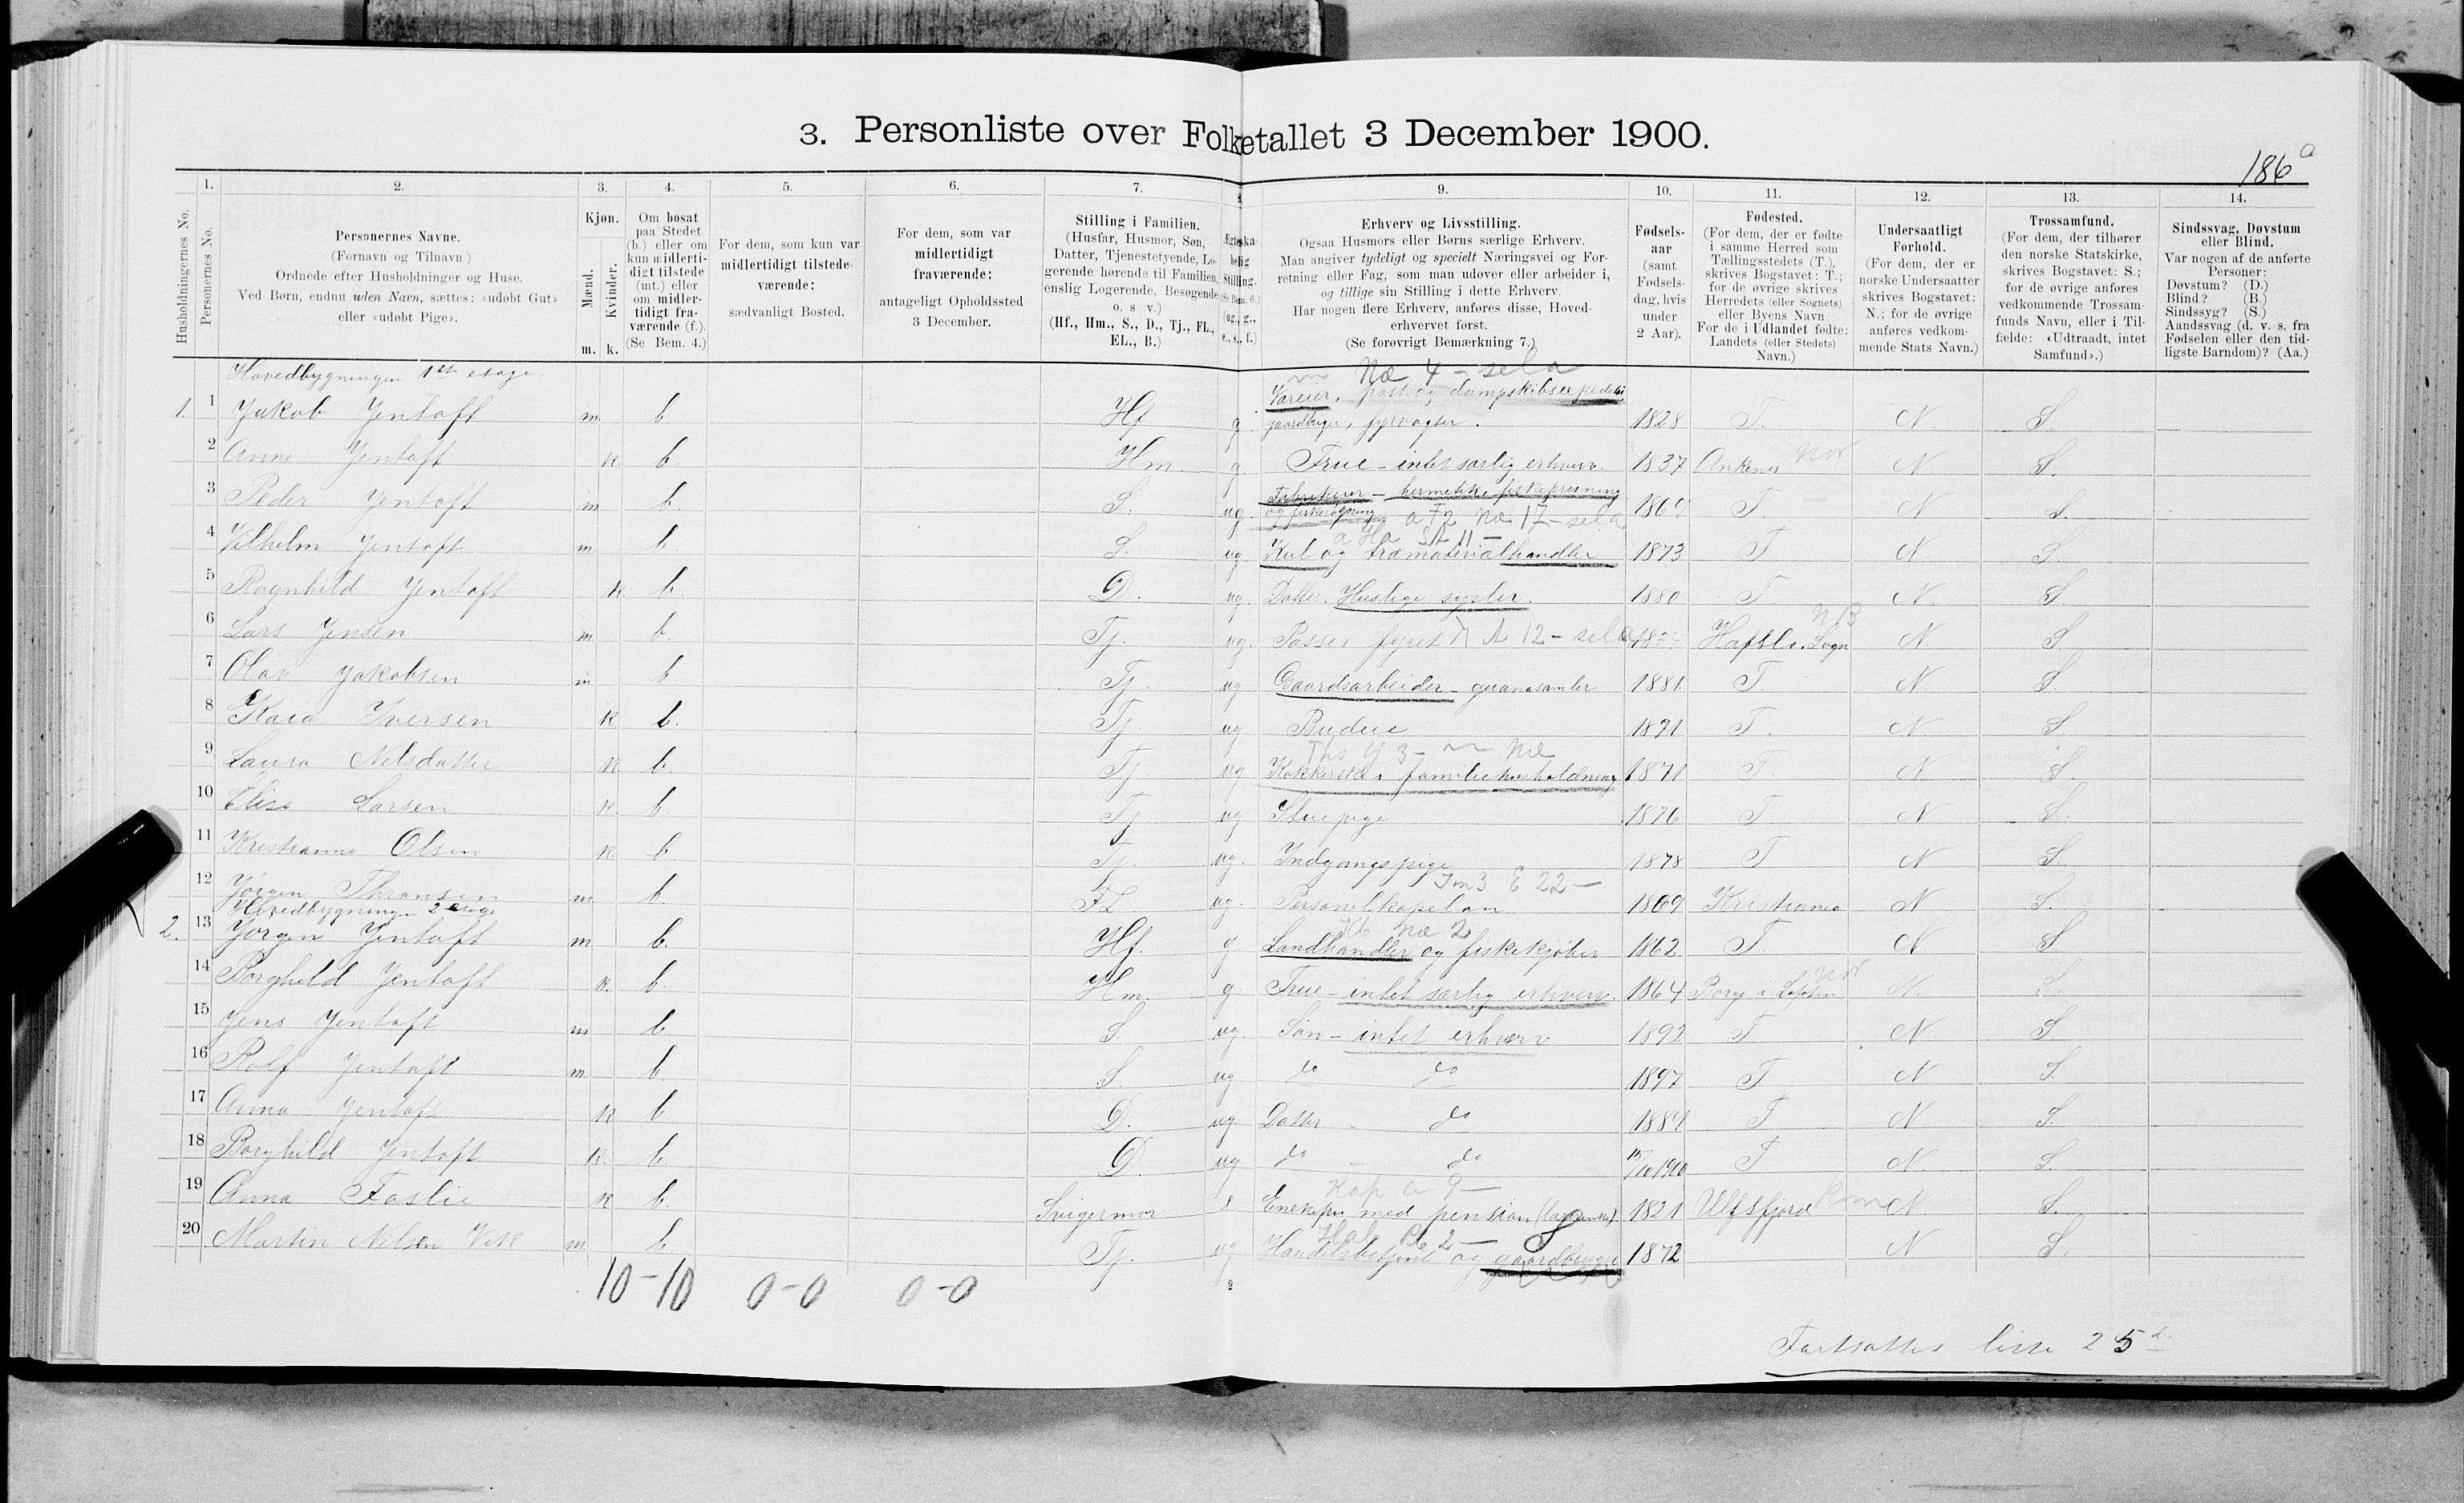 3. Personliste over Folketallet 3 December 1900.
186 a
1. 2. 3. 4. 5. 6. 7. 8. 9. 10. 11. 12. 13. 14.
Husholdningernes No.
Personernes No.
Personernes Navne.
(Fornavn og Tilnavn)
Ordnede efter Husholdninger og Huse.
Ved Børn, endnu uden Navn, sættes: «udøbt Gut»
eller «udøbt Pige».
Kjøn.
Mænd.
Kvinder.
m. k.
Om bosat
paa Stedet
(b.) eller om
kun midlerti-
digt tilstede
(mt.) eller
om midler-
tidigt fra-
værende (f.).
(Se Bem. 4.)
For dem, som kun var
midlertidigt tilstede-
værende:
sædvanligt Bosted.
For dem, som var
midlertidigt
fraværende:
antageligt Opholdssted
3 December.
Stilling i Familien.
(Husfar, Husmor, Søn,
Datter, Tjenestetyende, Lo-
gerende hørende til Familien,
enslig Logerende, Besøgende
o. s v.)
(Hf., Hm., S., D., Tj., FL.,
EL., B.)
Ægteska-
belig
Stilling.
(Se Bem. 6.)
(ug., g.,
e., s., f.)
Erhverv og Livsstilling.
Ogsaa Husmors eller Børns særlige Erhverv.
Man angiver tydeligt og specielt Næringsvei og For-
retning eller Fag, som man udøver eller arbeider i,
og tillige sin Stilling i dette Erhverv.
Har nogen flere Erhverv, anføres disse, Hoved-
erhvervet først.
(Se forøvrigt Bemærkning 7.)
Fødsels-
aar
(samt
Fødsels-
dag, hvis
under
2 Aar).
Fødested.
(For dem, der er fødte
i samme Herred som
Tællingsstedets (T.),
skrives Bogstavet: T.;
for de øvrige skrives
Herredets (eller Sognets)
eller Byens Navn.
For de i Udlandet fødte:
Landets (eller Stedets)
Navn.)
Undersaatligt
Forhold.
(For dem, der er
norske Undersaatter
skrives Bogstavet:
N.; for de øvrige
anføres vedkom-
mende Stats Navn.)
Trossamfund.
(For dem, der tilhører
den norske Statskirke,
skrives Bogstavet: S.;
for de øvrige anføres
vedkommende Trossam-
funds Navn, eller i Til-
fælde: «Udtraadt, intet
Samfund».)
Sindssvag, Døvstum
eller Blind.
Var nogen af de anførte
Personer:
Døvstum? (D.)
Blind? (B.)
Sindssyg? (S.)
Aandssvag (d. v. s. fra
Fødselen eller den tid-
ligste Barndom)? (Aa.)
Hovedbygningen 1ste etage.
Næ 4 - sela
Væreier, post og dampskibsexpeditør
1. 1 Jakob Jentoft m b Hf g gaardbruger, fyrvogter. 1828 T. N. S.
2 Anne Jentoft k. b. Hm. g. Frue - intet særlig erhverv. 1837 Ankenes Nor N S.
Fabrikeier - hermetik, fiskepresning
3 Peder Jentoft m b. S. ug. og fiskerøgning a F2 Næ 17 - sela 1869 T. N S.
a Ha St 11 -
4 Vilhelm Jentoft m b. S. ug. Kul og træmaterialhandler 1873 T N. S.
5 Ragnhild Jentoft k b. D. ug. Datter. Huslige sysler. 1880 T. N. S.
6 Lars Jensen m b. Tj. ug. Passer fyret A 12 - sela Hafslo. Sogn NB N. S
7 Olav Jakobsen m b. Tj. ug Gaardsarbeider - guanosamler 1881. T. N S.
8 Kaia Iversen k b. Tj ug Budeie T. N S
Ths G 3 - Næ
9 Laura Nelsdatter k b. Tj ug Kokkerske i familiehusholdning 1871 T. N S
10 Elise Larsen k. b. Tj. ug Stuepige 1876 T. N S.
11 Kristianna Olsen k. b. Tj. ug. Indgangspige 1878 T N S.
Im 3 E 22 -
12 Jørgen Thransen m b. FL ug. Personelkapelan 1869 Kristiania N S.
Hovedbygningen 2 etage
Næ 2
2. 13 Jørgen Jentoft m b. Hf. g Landhandler og fiskekjøber 1862 T. N S
14 Borghild Jentoft k. b. Hm. g. Frue - intet særlig erhverv. 1864 Borge i Lofoten Nor N S.
15 Jens Jentoft m b. S. ug. Søn - intet erhverv 1892 T N S
16 Rolf Jentoft m b. S. ug do do 1897 T N S.
17 Anna Jentoft k b D. ug Datter - do 1889 T N S.
18 Borghild Jentoft k. b. D. ug do - do 1900 T N. S.
Kap a 9 -
19 Anna Faslie k b. Svigermor e Enkefru med pension 1821 Ulfsfjord N. S.
2 -
20 Martin Nilsen Vik m b. Tj. ug Handelsbetjent og gaardbruger 1872 N S.
10 - 10 0 - 0 0 - 0
2
Fortsættes liste 2 5